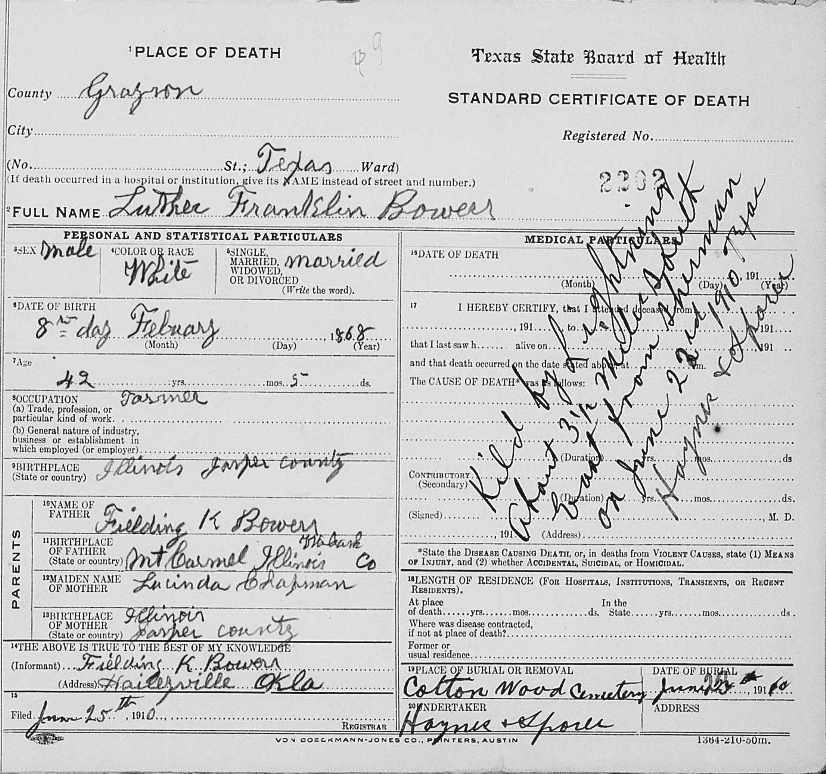 ¹PLACE OF DEATH
Texas State Board of Health
County Grayson
STANDARD CERTIFICATE OF DEATH
City
Registered No.
(No. St.; Texas Ward)
(If death occurred in a hospital or institution, give its NAME instead of street and number.)
2302
²FULL NAME Luther Franklin Bowers
PERSONAL AND STATISTICAL PARTICULARS
³SEX Male
⁴COLOR OR RACE White
⁵SINGLE, MARRIED, WIDOWED, OR DIVORCED married
(Write the word).
⁶DATE OF BIRTH
8 day Febuary 1868
(Month) (Day) (Year)
⁷Age
42 yrs. mos. 5 ds.
⁸OCCUPATION Farmer
(a) Trade, profession, or
particular kind of work.
(b) General nature of industry,
business or establishment in
which employed (or employer)
⁹BIRTHPLACE
(State or country) Illinois Jasper county
PARENTS
¹⁰NAME OF
FATHER Fielding K Bowers
¹¹BIRTHPLACE
OF FATHER
(State or country) Mt Carmel Illinois Wabash Co
¹²MAIDEN NAME
OF MOTHER Lucinda Chapman
¹³BIRTHPLACE
OF MOTHER
(State or country) Illinois Jasper county
¹⁴THE ABOVE IS TRUE TO THE BEST OF MY KNOWLEDGE
(Informant) Fielding K Bowers
(Address) Haileyville Okla
¹⁵
Filed June 25th, 1910
REGISTRAR
MEDICAL PARTICULARS
¹⁶DATE OF DEATH
, 191
(Month) (Day) (Year)
¹⁷ I HEREBY CERTIFY, that I attended deceased from
, 191 , to , 191
that I last saw h alive on , 191
and that death occurred on the date stated above at m.
The CAUSE OF DEATH* was as follows:
(Duration) yrs. mos. ds
CONTRIBUTORY
(Secondary)
(Duration) yrs. mos. ds.
(Signed) , M. D.
, 191 (Address)
Kild by Lightning
About 3½ Miles South
East from Sherman
on June 22nd 1910 Texas
Haynes & Sporer
*State the DISEASE CAUSING DEATH, or, in deaths from VIOLENT CAUSES, state (1) MEANS
OF INJURY, and (2) whether ACCIDENTAL, SUICIDAL, or HOMICIDAL.
¹⁸LENGTH OF RESIDENCE (FOR HOSPITALS, INSTITUTIONS, TRANSIENTS, OR RECENT
RESIDENTS).
At place
of death yrs. mos. ds.
In the
State yrs. mos. ds.
Where was disease contracted,
if not at place of death?
Former or
usual residence
¹⁹PLACE OF BURIAL OR REMOVAL
Cotton Wood Cemetery
DATE OF BURIAL
June 23th, 1910
²⁰UNDERTAKER
Haynes & Sporer
ADDRESS
VON BOECKMANN-JONES CO., PRINTERS, AUSTIN
1364-210-50m.